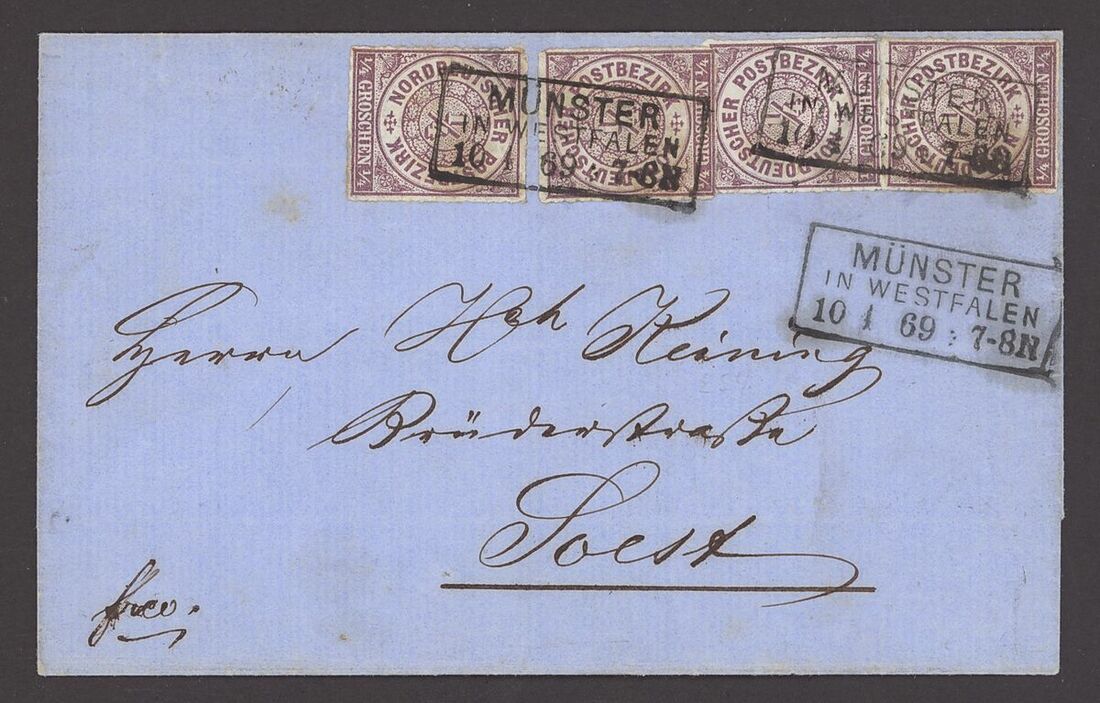 ¼ GROSCHEN ¼ NORDDEUTSCHER POSTBEZIRK
NORDDEUTSCHER POSTBEZIRK ¼ GROSCHEN ¼
NORDDEUTSCHER POSTBEZIRK
NORDDEUTSCHER POSTBEZIRK ¼ GROSCHEN ¼
MÜNSTER
IN WESTFALEN
10 1 69 7-8N
IN WESTFALEN
10 7-8N
MÜNSTER
IN WESTFALEN
10 1 69 7-8N
Herrn Hch Keining
Brüderstraße
Soest
frco.